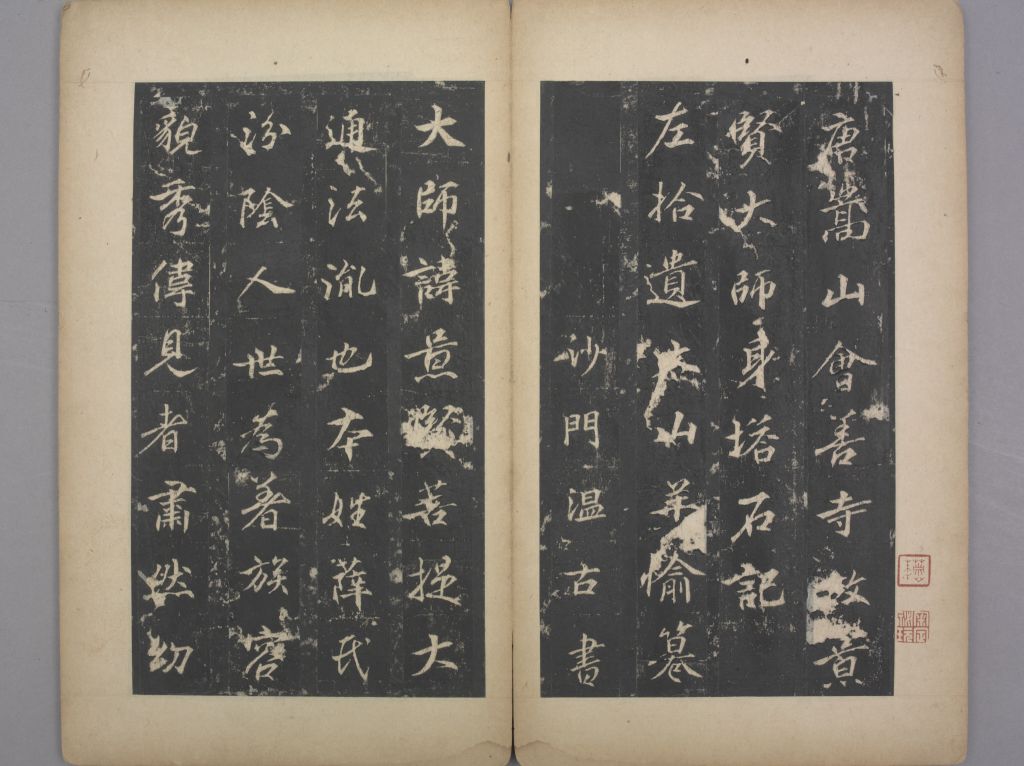 唐嵩山會善寺故景
賢大師身塔石記
左拾遺太山羊愉篹
沙門温古書
大師諱景賢菩提大
通法胤也本姓薛氏
汾陰人世為著族容
貌秀偉見者肅然幼